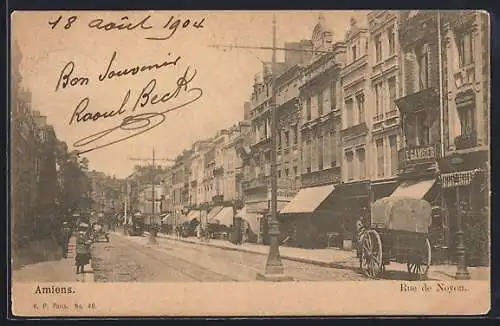 18 Août 1904
Bon Souvenir
Raoul Beck
GAMBIER
Amiens.
Rue de Noyon.
V. P. Paris. No. 48